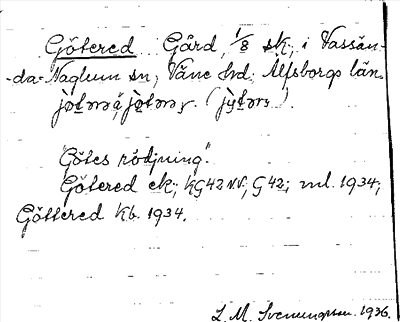 Götered Gård, 1/8 sk; i Vassän-
-da-Naglum sn, Väne hd, Älfsborgs län.
"Götes rödjning".
Götered ek; KG42NV; G42; ml. 1934;
Göttered Kb. 1934.
L. M. Svenungsson. 1936.